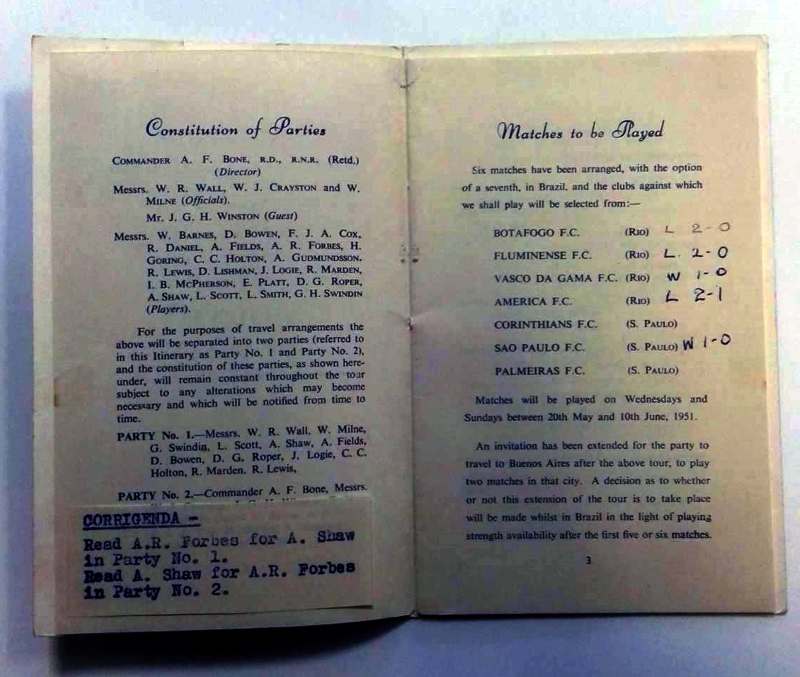 Constitution of Parties
COMMANDER A. F. BONE, R.D., R.N.R. (Retd.)
(Director)
Messrs. W. R. WALL, W. J. CRAYSTON and W.
MILNE (Officials).
Mr. J. G. H. WINSTON (Guest)
Messrs. W. BARNES, D. BOWEN, F. J. A. COX,
R. DANIEL, A. FIELDS, A. R. FORBES, H.
GORING, C. C. HOLTON, A. GUDMUNDSSON.
R. LEWIS, D. LISHMAN, J. LOGIE, R. MARDEN,
I. B. MCPHERSON, E. PLATT, D. G. ROPER,
A. SHAW, L. SCOTT, L. SMITH, G. H. SWINDIN
(Players).
For the purposes of travel arrangements the
above will be separated into two parties (referred to
in this Itinerary as Party No. 1 and Party No. 2),
and the constitution of these parties, as shown here-
under, will remain constant throughout the tour
subject to any alterations which may become
necessary and which will be notified from time to
time.
PARTY No. 1.—Messrs. W. R. Wall, W. Milne,
G. Swindin, L. Scott, A. Shaw, A. Fields,
D. Bowen, D. G. Roper, J. Logie, C. C.
Holton, R. Marden. R. Lewis,
PARTY No. 2.—Commander A. F. Bone, Messrs.
CORRIGENDA -
Read A.R. Forbes for A. Shaw
in Party No. 1.
Read A. Shaw for A.R. Forbes
in Party No. 2.
Matches to be Played
Six matches have been arranged, with the option
of a seventh, in Brazil, and the clubs against which
we shall play will be selected from:—
BOTAFOGO F.C. (RIO) L 2-0
FLUMINENSE F.C. (RIO) L. 2-0
VASCO DA GAMA F.C. (RIO) W 1-0
AMERICA F.C. (RIO) L 2-1
CORINTHIANS F.C. (S. PAULO)
SAO PAULO F.C. (S. PAULO) W 1-0
PALMEIRAS F.C. (S. PAULO)
Matches will be played on Wednesdays and
Sundays between 20th May and 10th June, 1951.
An invitation has been extended for the party to
travel to Buenos Aires after the above tour, to play
two matches in that city. A decision as to whether
or not this extension of the tour is to take place
will be made whilst in Brazil in the light of playing
strength availability after the first five or six matches.
3